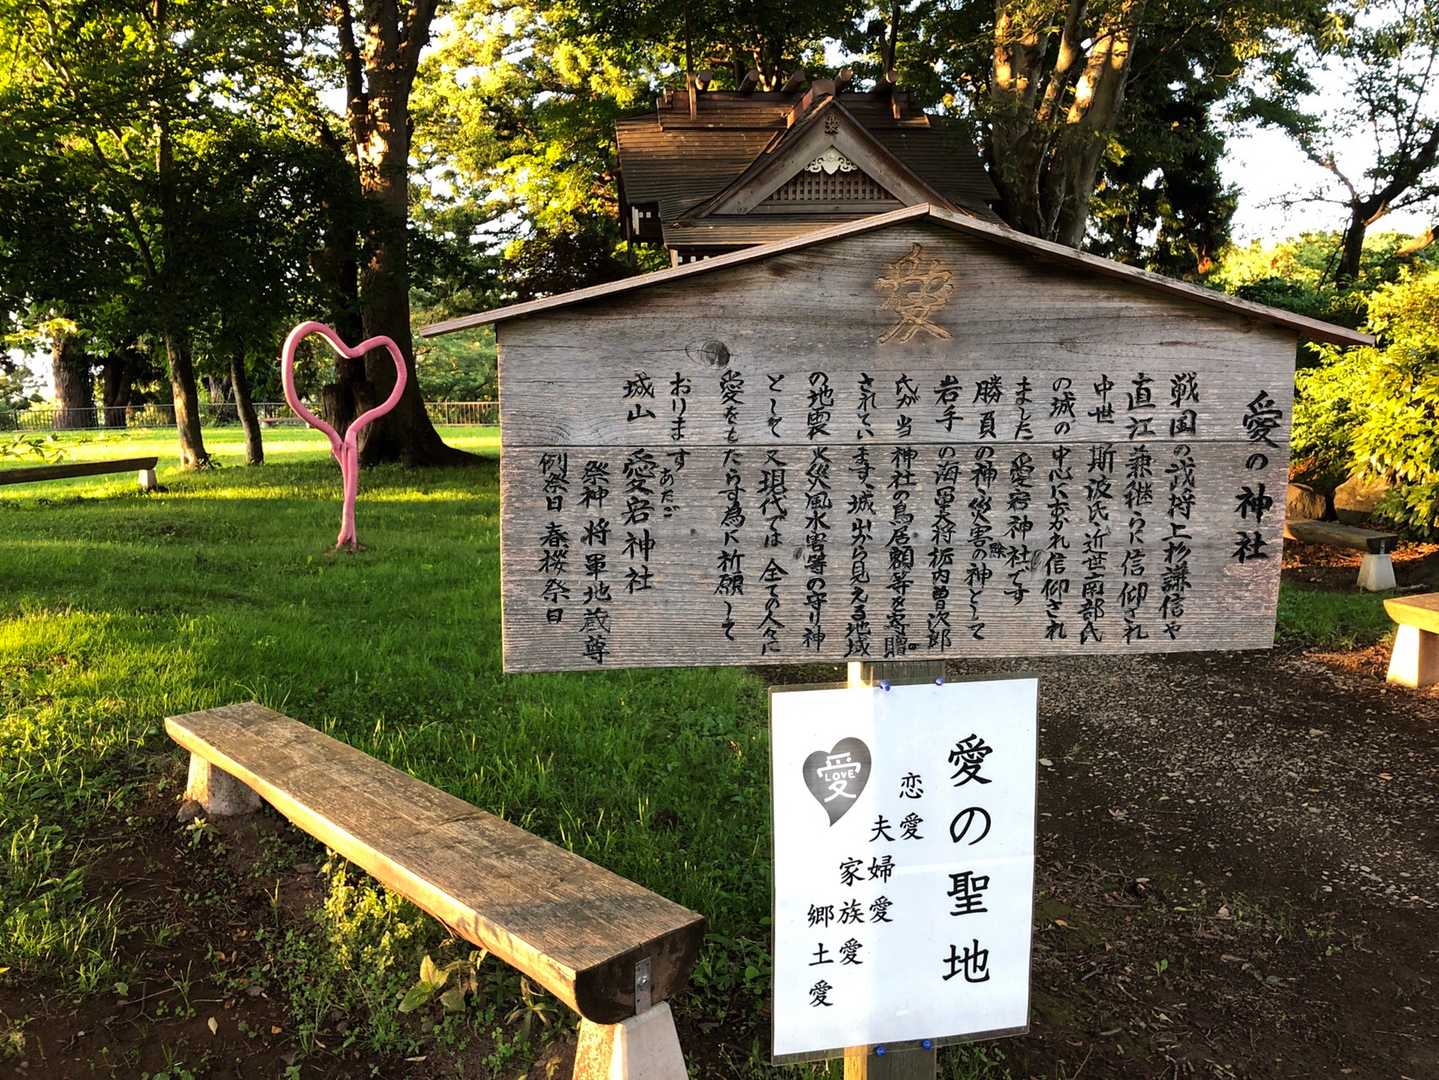 愛
愛の神社
戦国の武将上杉謙信や
直江兼継らに信仰され
中世 斯波氏・近世南部氏
の城の中心におかれ信仰され
ました 愛宕神社です
勝負の神・災害除の神として
岩手の海軍大将栃内曽次郎
氏が当神社の鳥居額等を寄贈。
されています、城山から見える地域
の地震火災風水害等の守り神
として又現代では全ての人々に
愛をもたらす為に祈願して
おります
城山 愛宕神社
あたご
祭神 将軍地蔵尊
例祭日 春桜祭日
愛の聖地
恋愛
夫婦愛
家族愛
郷土愛
愛
LOVE